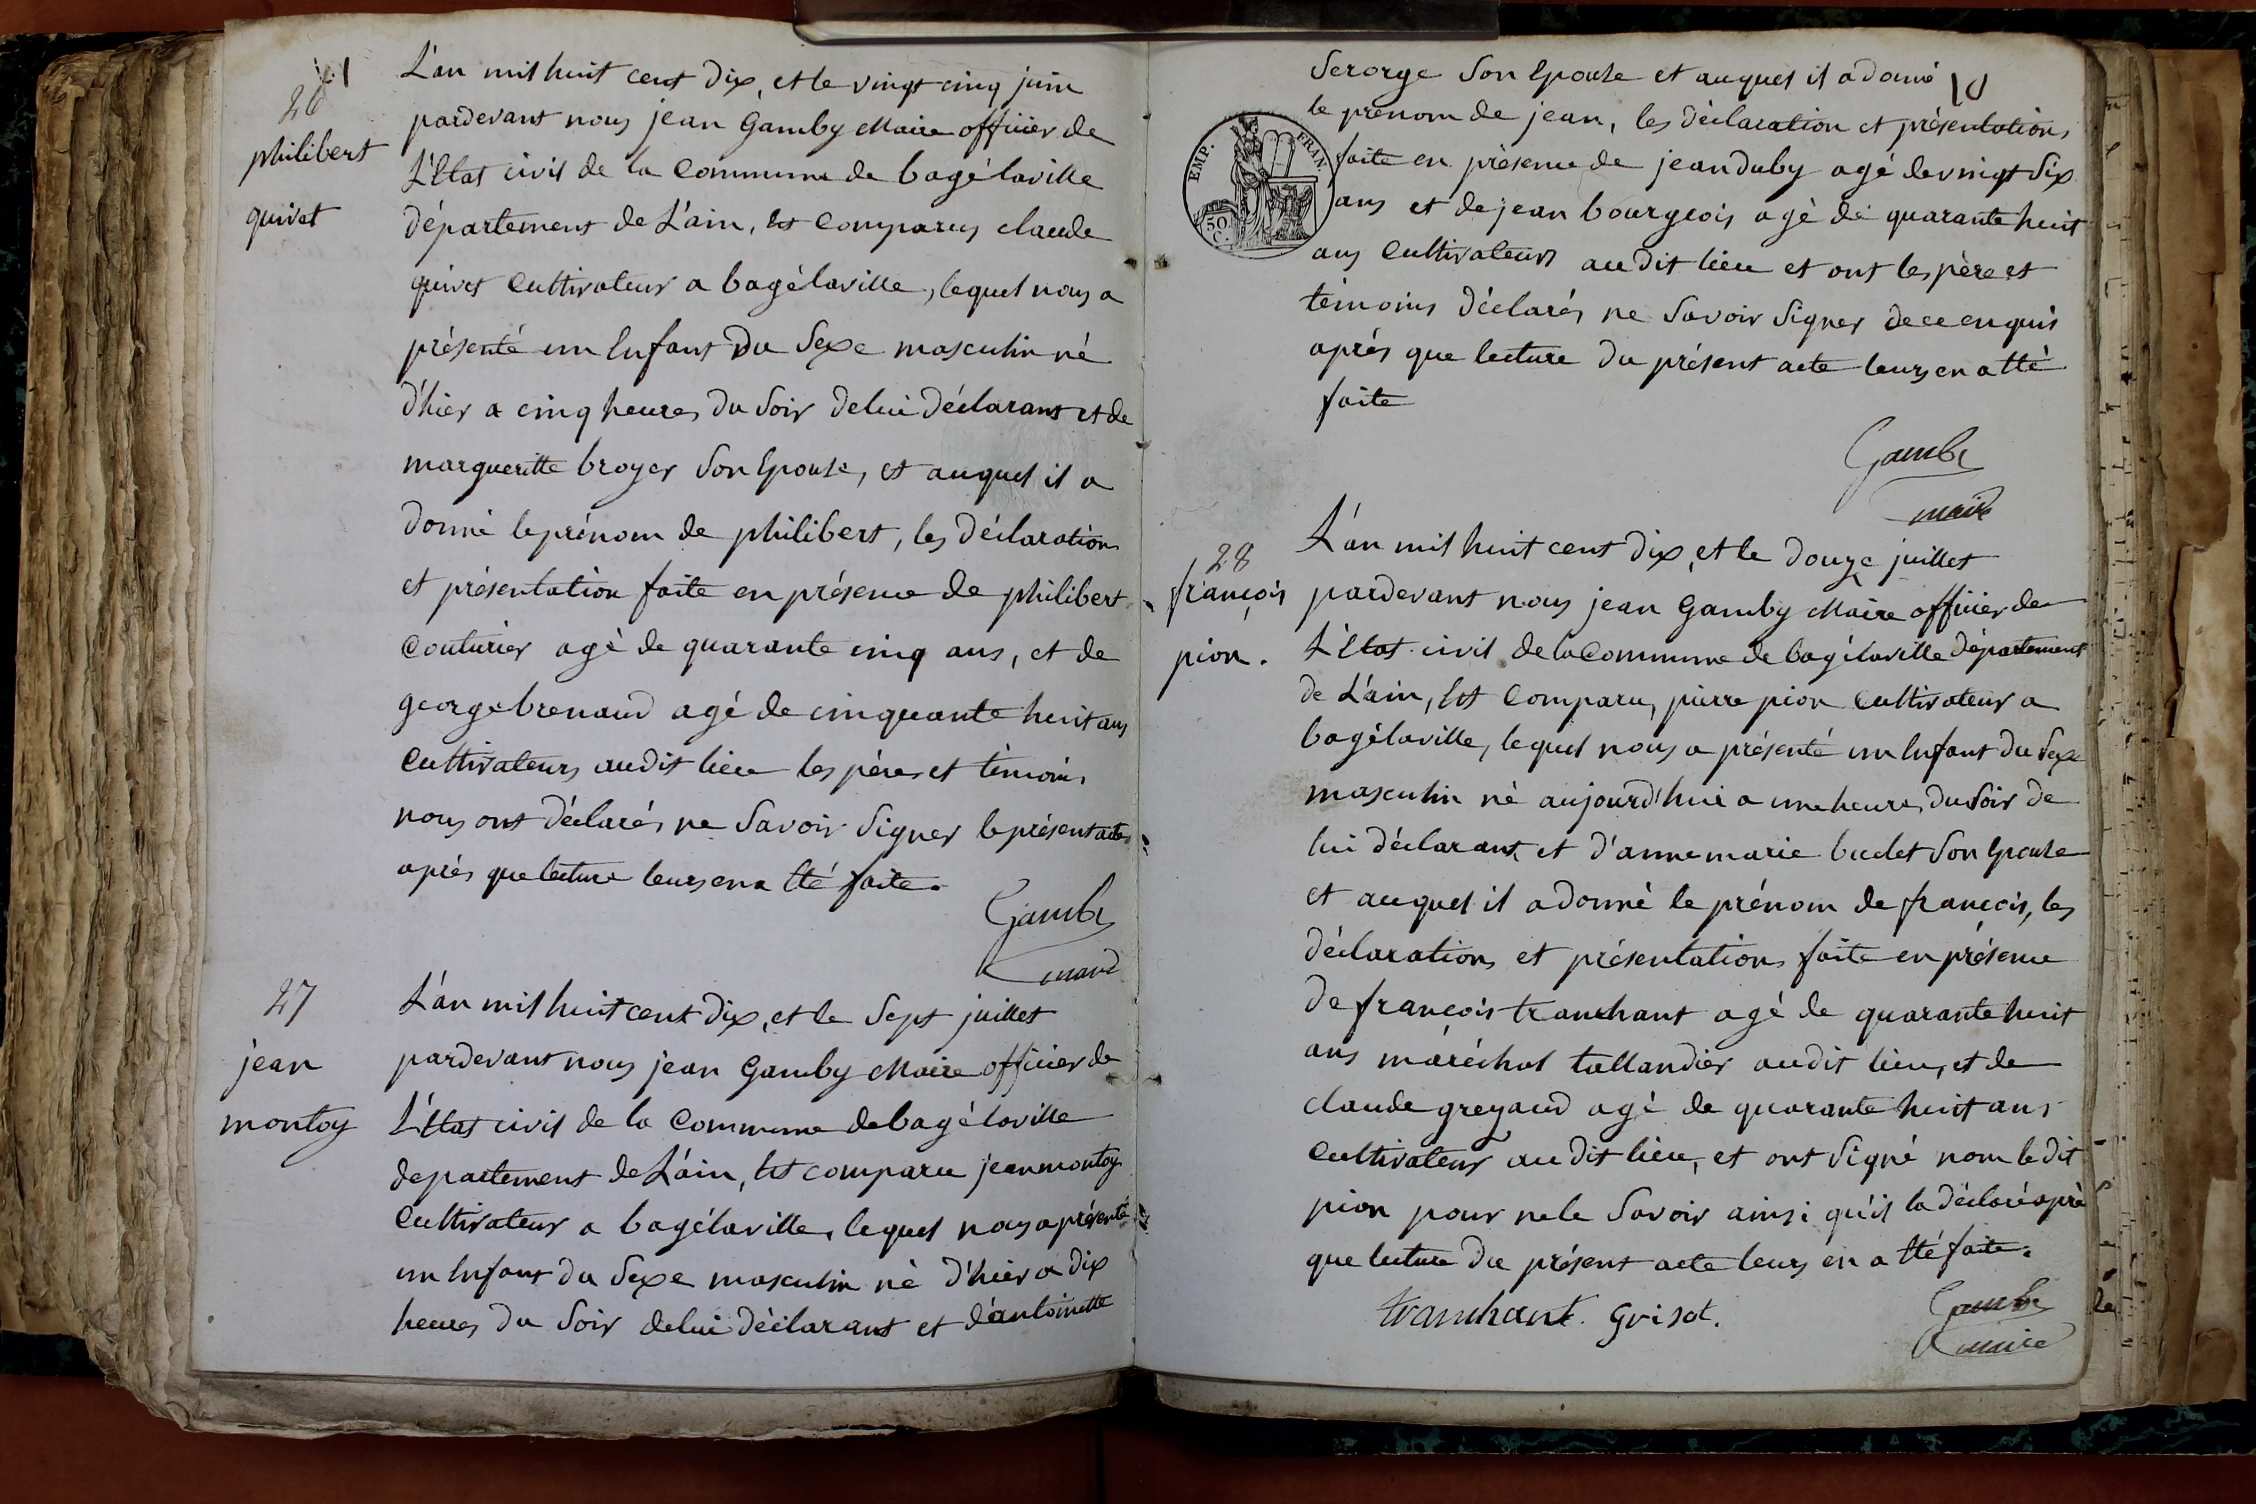 26
philibert
quivet
L'an mil huit cent dix, et le vingt cinq juin
pardevant nous jean Gamby Maire officier de
L'Etat civil de la Commune de bagélaville
département de L'ain, Est Comparus claude
quivet Cultivateur a bagélaville, lequel nous a
présenté un Enfant du Sexe masculin né
d'hier a cinq heures du Soir de lui déclarant et de
margueritte broyer Son Epouse, et auquel il a
donné le prénom de philibert, les déclaration
et présentation faite en présence de philibert
Couturier agé de quarante cinq ans, et de
george brenaud agé de cinquante huit ans
Cultivateurs audit lieu les père et témoins
nous ont déclarés ne Savoir Signer le présent acte
après que lecture leurs en a Eté faite.
Gamby
maire
27
jean
montoy
L'an mil huit cent dix, et le Sept juillet
pardevant nous jean Gamby Maire officier de
L'Etat civil de la Commune de bagélaville
departement de L'ain, Est comparu jean montoy
Cultivateur a bagélaville, lequel nous a présenté
un Enfant du Sexe masculin né d'hier a dix
heures du Soir de lui déclarant et d'antoinette
Serorge Son Epouse et auquel il a donné
le prénom de jean, les déclaration et présentations
EMP. FRAN.
50 C.
faite en présence de jean duby agé de vingt Six
ans et de jean bourgeois agé de quarante huit
ans Cultivateurs audit lieu et ont les père et
témoins déclarés ne Savoir Signer de ce enquis
après que lecture du présent acte leurs en a Eté
faite
Gamby
maire
28
françois
pion.
L'an mil huit cent dix, et le douze juillet
pardevant nous jean Gamby Maire officier de
L'Etat civil de la Commune de bagélaville département
de L'ain, Est Comparu, pierre pion Cultivateur a
bagélaville, lequel nous a présenté un Enfant du Sexe
masculin né aujourd'hui a une heure du Soir de
lui déclarant et d'anne marie budet Son Epouse
et auquel il a donné le prénom de françois, les
déclarations et présentations faite en présence
de françois tranchant agé de quarante huit
ans maréchal tallandier audit lieu, et de
claude greyaud agé de quarante huit ans
Cultivateur audit lieu, et ont Signé nom le dit
pion pour ne le Savoir ainsi qu'il la déclaré aprè
que lecture du présent acte leurs en a Eté faite.
tranchant. Grisot.
Gamby
maire